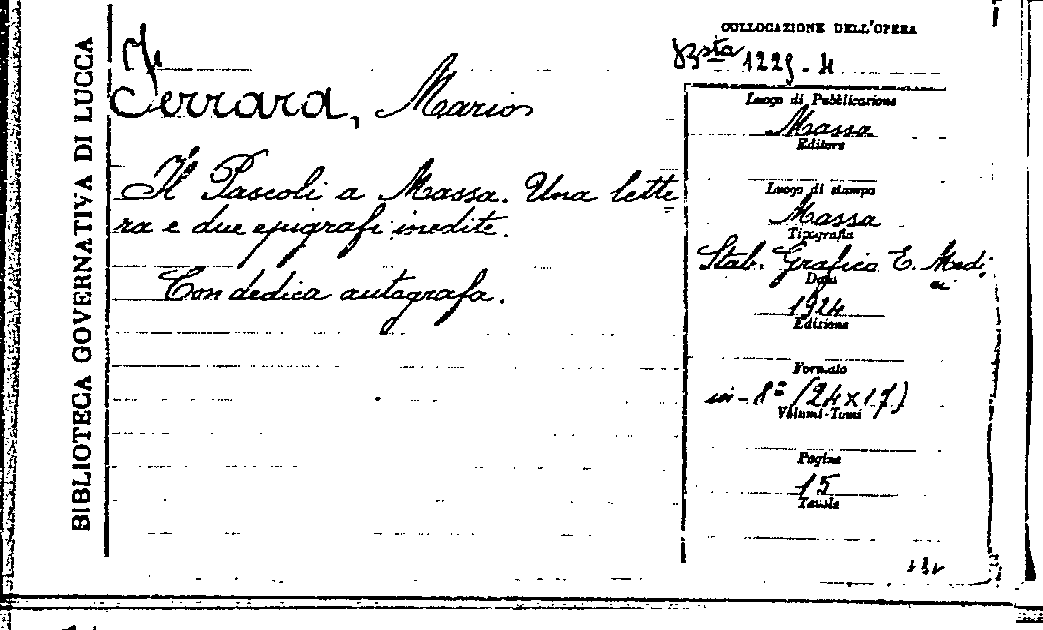 BIBLIOTECA GOVERNATIVA DI LUCCA
Ferrara, Mario
Il Pascoli a Massa. Una lette
ra e due epigrafi inedite.
Con dedica autografa.
COLLOCAZIONE DELL'OPERA
Bsta 1225.4
Luogo di Pubblicazione
Massa
Editore
Luogo di stampa
Massa
Tipografia
Stab. Grafico E. Medi
ci
Data
1924
Edizione
Formato
in-8º (24x17)
Volumi-Tomi
Pagine
15
Tavole